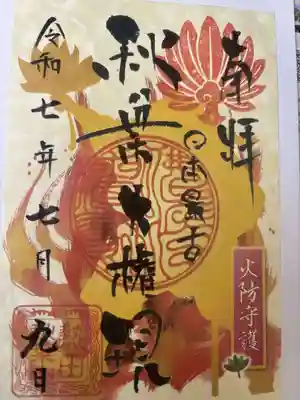 奉拝
火防守護
日本最古
秋葉大権現
令和七年七月九日